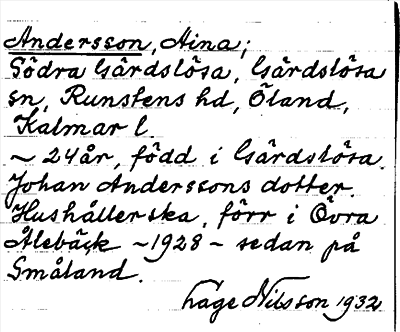 Andersson, Aina;
Södra Gärdslösa, Gärdslösa
sn, Runstens hd, Öland,
Kalmar l.
~ 24 år, född i Gärdslösa.
Johan Anderssons dotter.
Hushållerska, förr i Övra
Ålebäck ~1928~ sedan på
Småland.
Lage Nilsson 1932